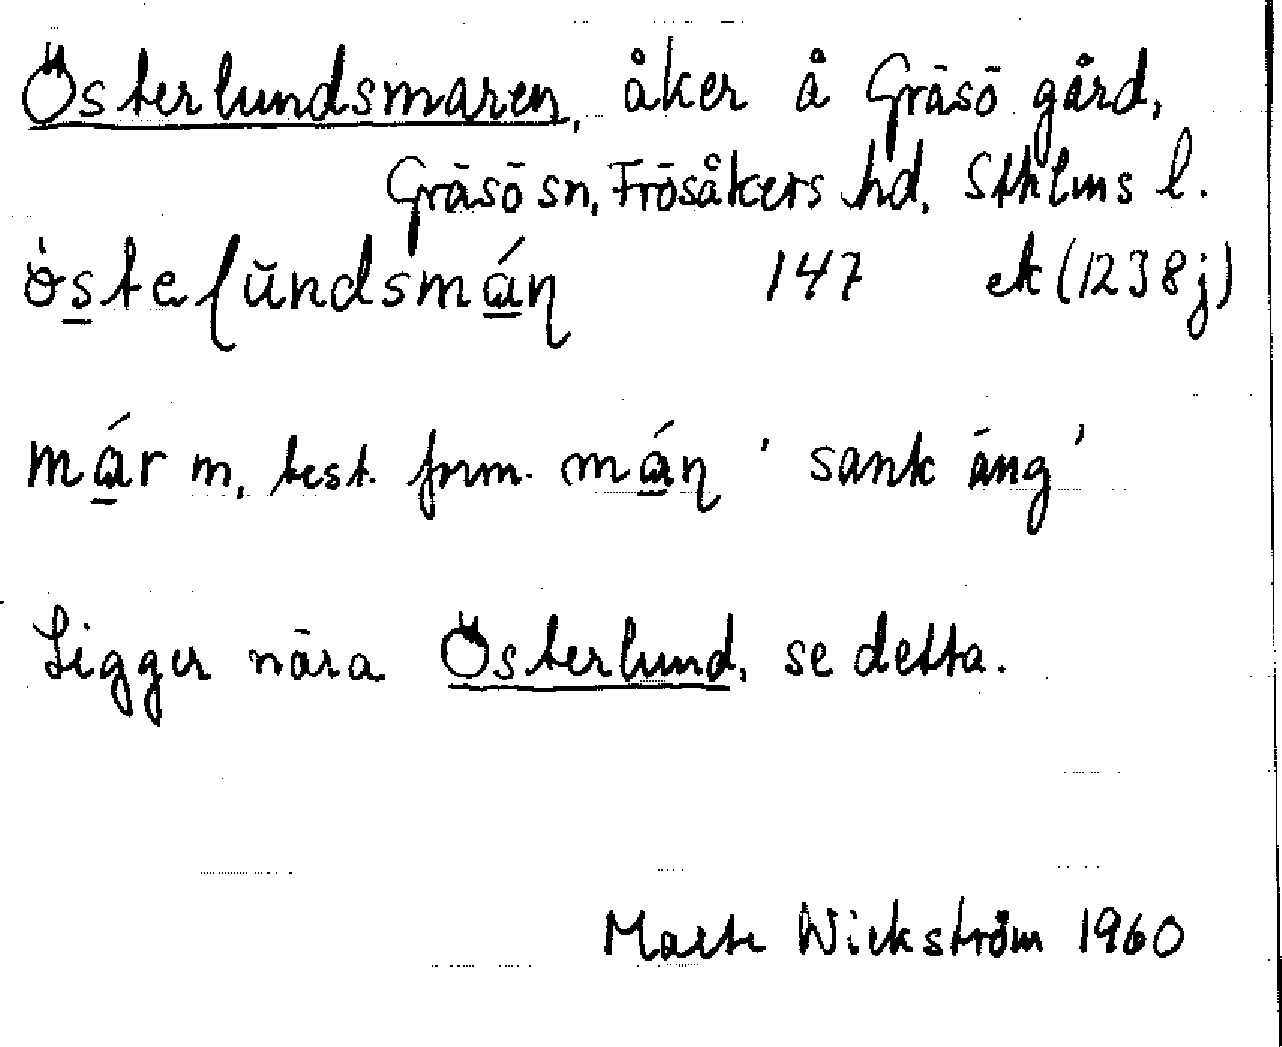 Österlundsmaren, åker å Gräsö gård,
Gräsö sn, Frösåkers hd, Sthlms l.
ö̀steʃŭndsmán 147 ek (1238j)
már m, best. form. máṇ 'sank äng'
Ligger nära Österlund, se detta.
Marte Wickström 1960